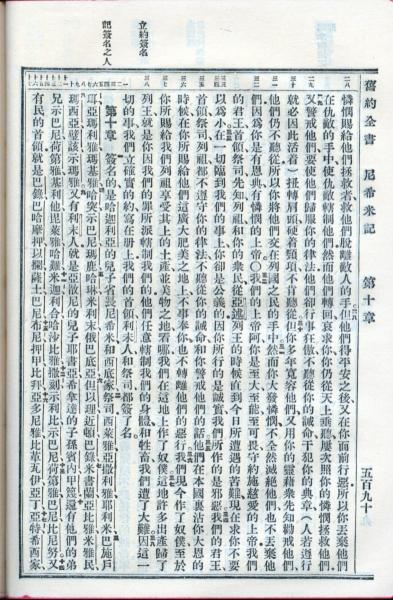 舊約全書　尼希米記　第十章　五百九十
憐憫賜給他們拯救者救他們脫離敵人的手但他們得平安之後又在你面前行惡所以你丟棄他們
在仇敵的手中使仇敵轄制他們然而他們轉回哀求你你仍從天上垂聽屢次照你的憐憫拯救他們
又警戒他們要使他們歸服你的律法他們卻行事狂傲不聽從你的誡命干犯你的典章（人若遵行
就必因此活着）扭轉肩頭硬着頸項不肯聽從但你多年寬容他們又用你的靈藉衆先知勸戒他們
他們仍不聽從所以你將他們交在列國之民的手中然而你大發憐憫不全然滅絕他們也不丟棄他
們因為你是有恩典有憐憫的上帝○我們的上帝阿你是至大至能至可畏守約施慈愛的上帝我們
的君王首領祭司先知列祖和你的衆民從亞述列王的時候直到今日所遭遇的苦難現在求你不要
以為小在一切臨到我們的事上你卻是公義的因你所行的是誠實我們所作的是邪惡我們的君王
首領祭司列祖都不遵守你的律法不聽從你的誡命和你警戒他們的話他們在本國裏沾你大恩的
時候在你所賜給他們這廣大肥美之地上不事奉你也不轉離他們的惡行我們現今作了奴僕至於
你所賜給我們列祖享受其上的土產並美物之地看哪我們在這地上作了奴僕這地許多出產歸了
列王就是你因我們的罪所派轄制我們的他們任意轄制我們的身體和牲畜我們遭了大難因這一
立約簽名
切的事我們立確實的約寫在冊上我們的首領利未人和祭司都簽了名
記簽名之人
第十章　簽名的是哈迦利亞的兒子省長尼希米和西底家祭司西萊雅亞撒利雅耶利米巴施戶
珥亞瑪利雅瑪基雅哈突示巴尼瑪鹿哈琳米利末俄巴底亞但以理近頓巴錄米書蘭亞比雅米雅民
瑪西亞璧該示瑪雅又有利未人就是亞散尼的兒子耶書亞希拿達的子孫賓內甲篾還有他們的弟
兄示巴尼荷第雅基利他毘萊雅哈難米迦利合哈沙比雅撒刻示利比示巴尼荷第雅巴尼比尼努又
有民的首領就是巴錄巴哈摩押以攔薩土巴尼布尼押甲比拜亞多尼雅比革瓦伊亞丁亞特希西家